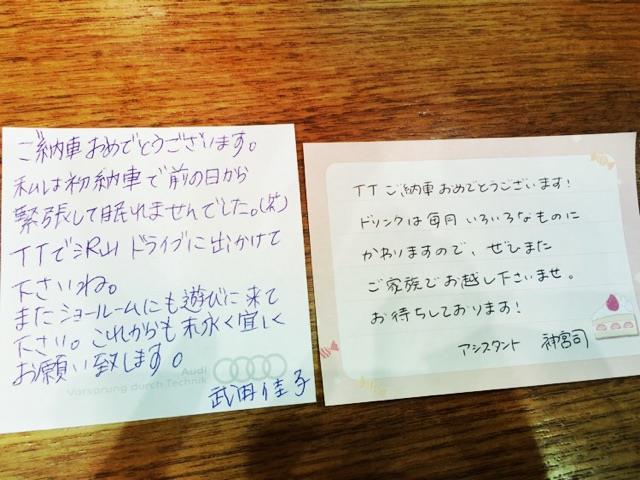 ご納車おめでとうございます。
私は初納車で前の日から
緊張して眠れませんでした。(笑)
TTで沢山ドライブに出かけて
下さいね。
またショールームにも遊びに来て
下さい。これからも末永く宜しく
お願い致します。
Audi
Vorsprung durch Technik
武田佳子
TTご納車おめでとうございます!
ドリンクは毎月いろいろなものに
かわりますので、ぜひまた
ご家族でお越し下さいませ。
お待ちしております!
アシスタント 神宮司